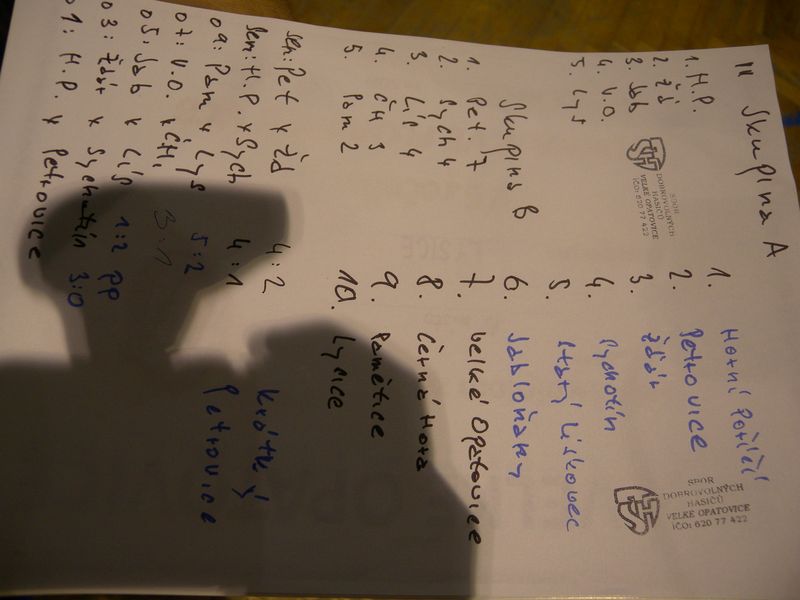 II Skupina A
1. H.P.
2. Žď
3. Jab
4. V.O.
5. Lys
SBOR
DOBROVOLNÝCH
HASIČŮ
VELKÉ OPATOVICE
IČO: 620 77 422
Skupina B
1. Pet. 7
2. Sych 4
3. Lís 4
4. ČH 3
5. Pam 2
sem: Pet x Žd 4:2
sem: H.P. x Sych 4:1
o9: Pam x Lys 5:2
o7: V.O. x ČH. 3:1
o5: Jab x Lís 1:2 pp
o3: Žďár x Sychotín 3:0
o1: H.P. x Petrovice
1. Horní Poříčí
2. Petrovice
3. Žďár
4. Sychotín
5. Starý Lískovec
6. Jabloňany
7. Velké Opatovice
8. Černá Hora
9. Pamětice
10. Lysice
Krátký
Petrovice
SBOR
DOBROVOLNÝCH
HASIČŮ
VELKÉ OPATOVICE
IČO: 620 77 422